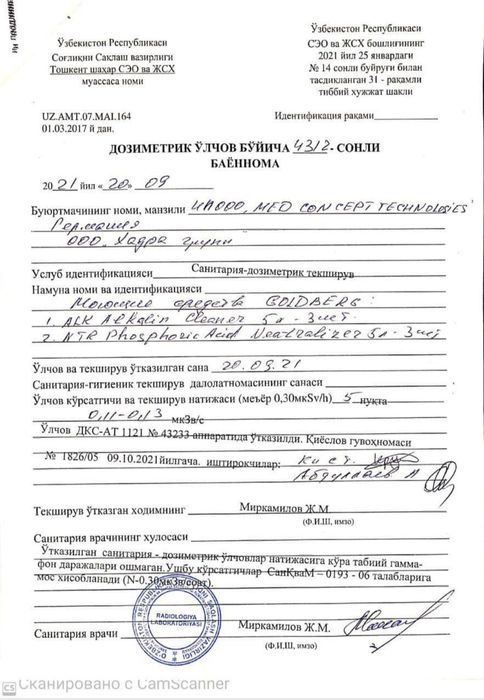 Ўзбекистон Республикаси
Соғлиқни Сақлаш вазирлиги
Тошкент шаҳар СЭО ва ЖСХ
муассаса номи
Ўзбекистон Республикаси
СЭО ва ЖСХ бошлиғининг
2021 йил 25 январдаги
№ 14 сонли буйруғи билан
тасдиқланган 31 - рақамли
тиббий хужжат шакли
UZ.AMT.07.MAI.164
01.03.2017 й дан.
Идентификация рақами
ДОЗИМЕТРИК ЎЛЧОВ БЎЙИЧА 4312 - СОНЛИ
БАЁННОМА
2021 йил «20» 09
Буюртмачининг номи, манзили ИП ООО, MED CONCEPT TECHNOLOGIES
Германия
ООО. Хадра групп
Услуб идентификацияси Санитария-дозиметрик текширув
Намуна номи ва идентификацияси
Моющие средства GOLDBERG:
1. ALK Alkalin Cleaner 5л - 3шт.
2. NTR Phosphoric Acid Neutralizer 5л - 3шт
Ўлчов ва текширув ўтказилган сана 20.09.21
Санитария-гигиеник текширув далолатномасининг санаси
Ўлчов кўрсатгичи ва текширув натижаси (меъёр 0,30мкSv/h) 5 нуқта
0,11-0,13 мкЗв/с
Ўлчов ДКС-АТ 1121 № 43233 аппаратида ўтказилди. Қиёслов гувоҳномаси
№ 1826/05 09.10.2021йилгача. иштирокчилар:
Абдуллаев А
Текширув ўтказган ходимнинг Миркамилов Ж.М.
(Ф.И.Ш, имзо)
Санитария врачининг хулосаси
Ўтказилган санитария - дозиметрик ўлчовлар натижасига кўра табиий гамма-
фон даражалари ошмаган.Ушбу кўрсатгичлар СанҚваМ – 0193 - 06 талабларига
мос хисобланади (N-0,30мкЗв/соат).
RADIOLOGIYA
LABORATORIYASI
Санитария врачи Миркамилов Ж.М.
(Ф.И.Ш, имзо)
CS Сканировано с CamScanner